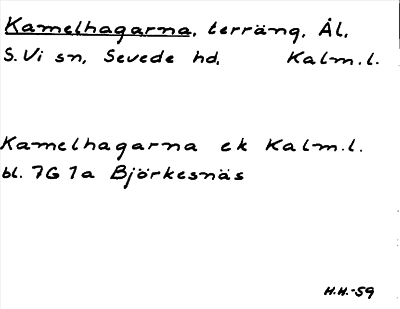 Kamelhagarna, terräng, Ål,
S. Vi sn, Sevede hd, Kalm.l.
Kamelhagarna ek Kalm.l.
bl. 7G 1a Björkesnäs
H.H.-59